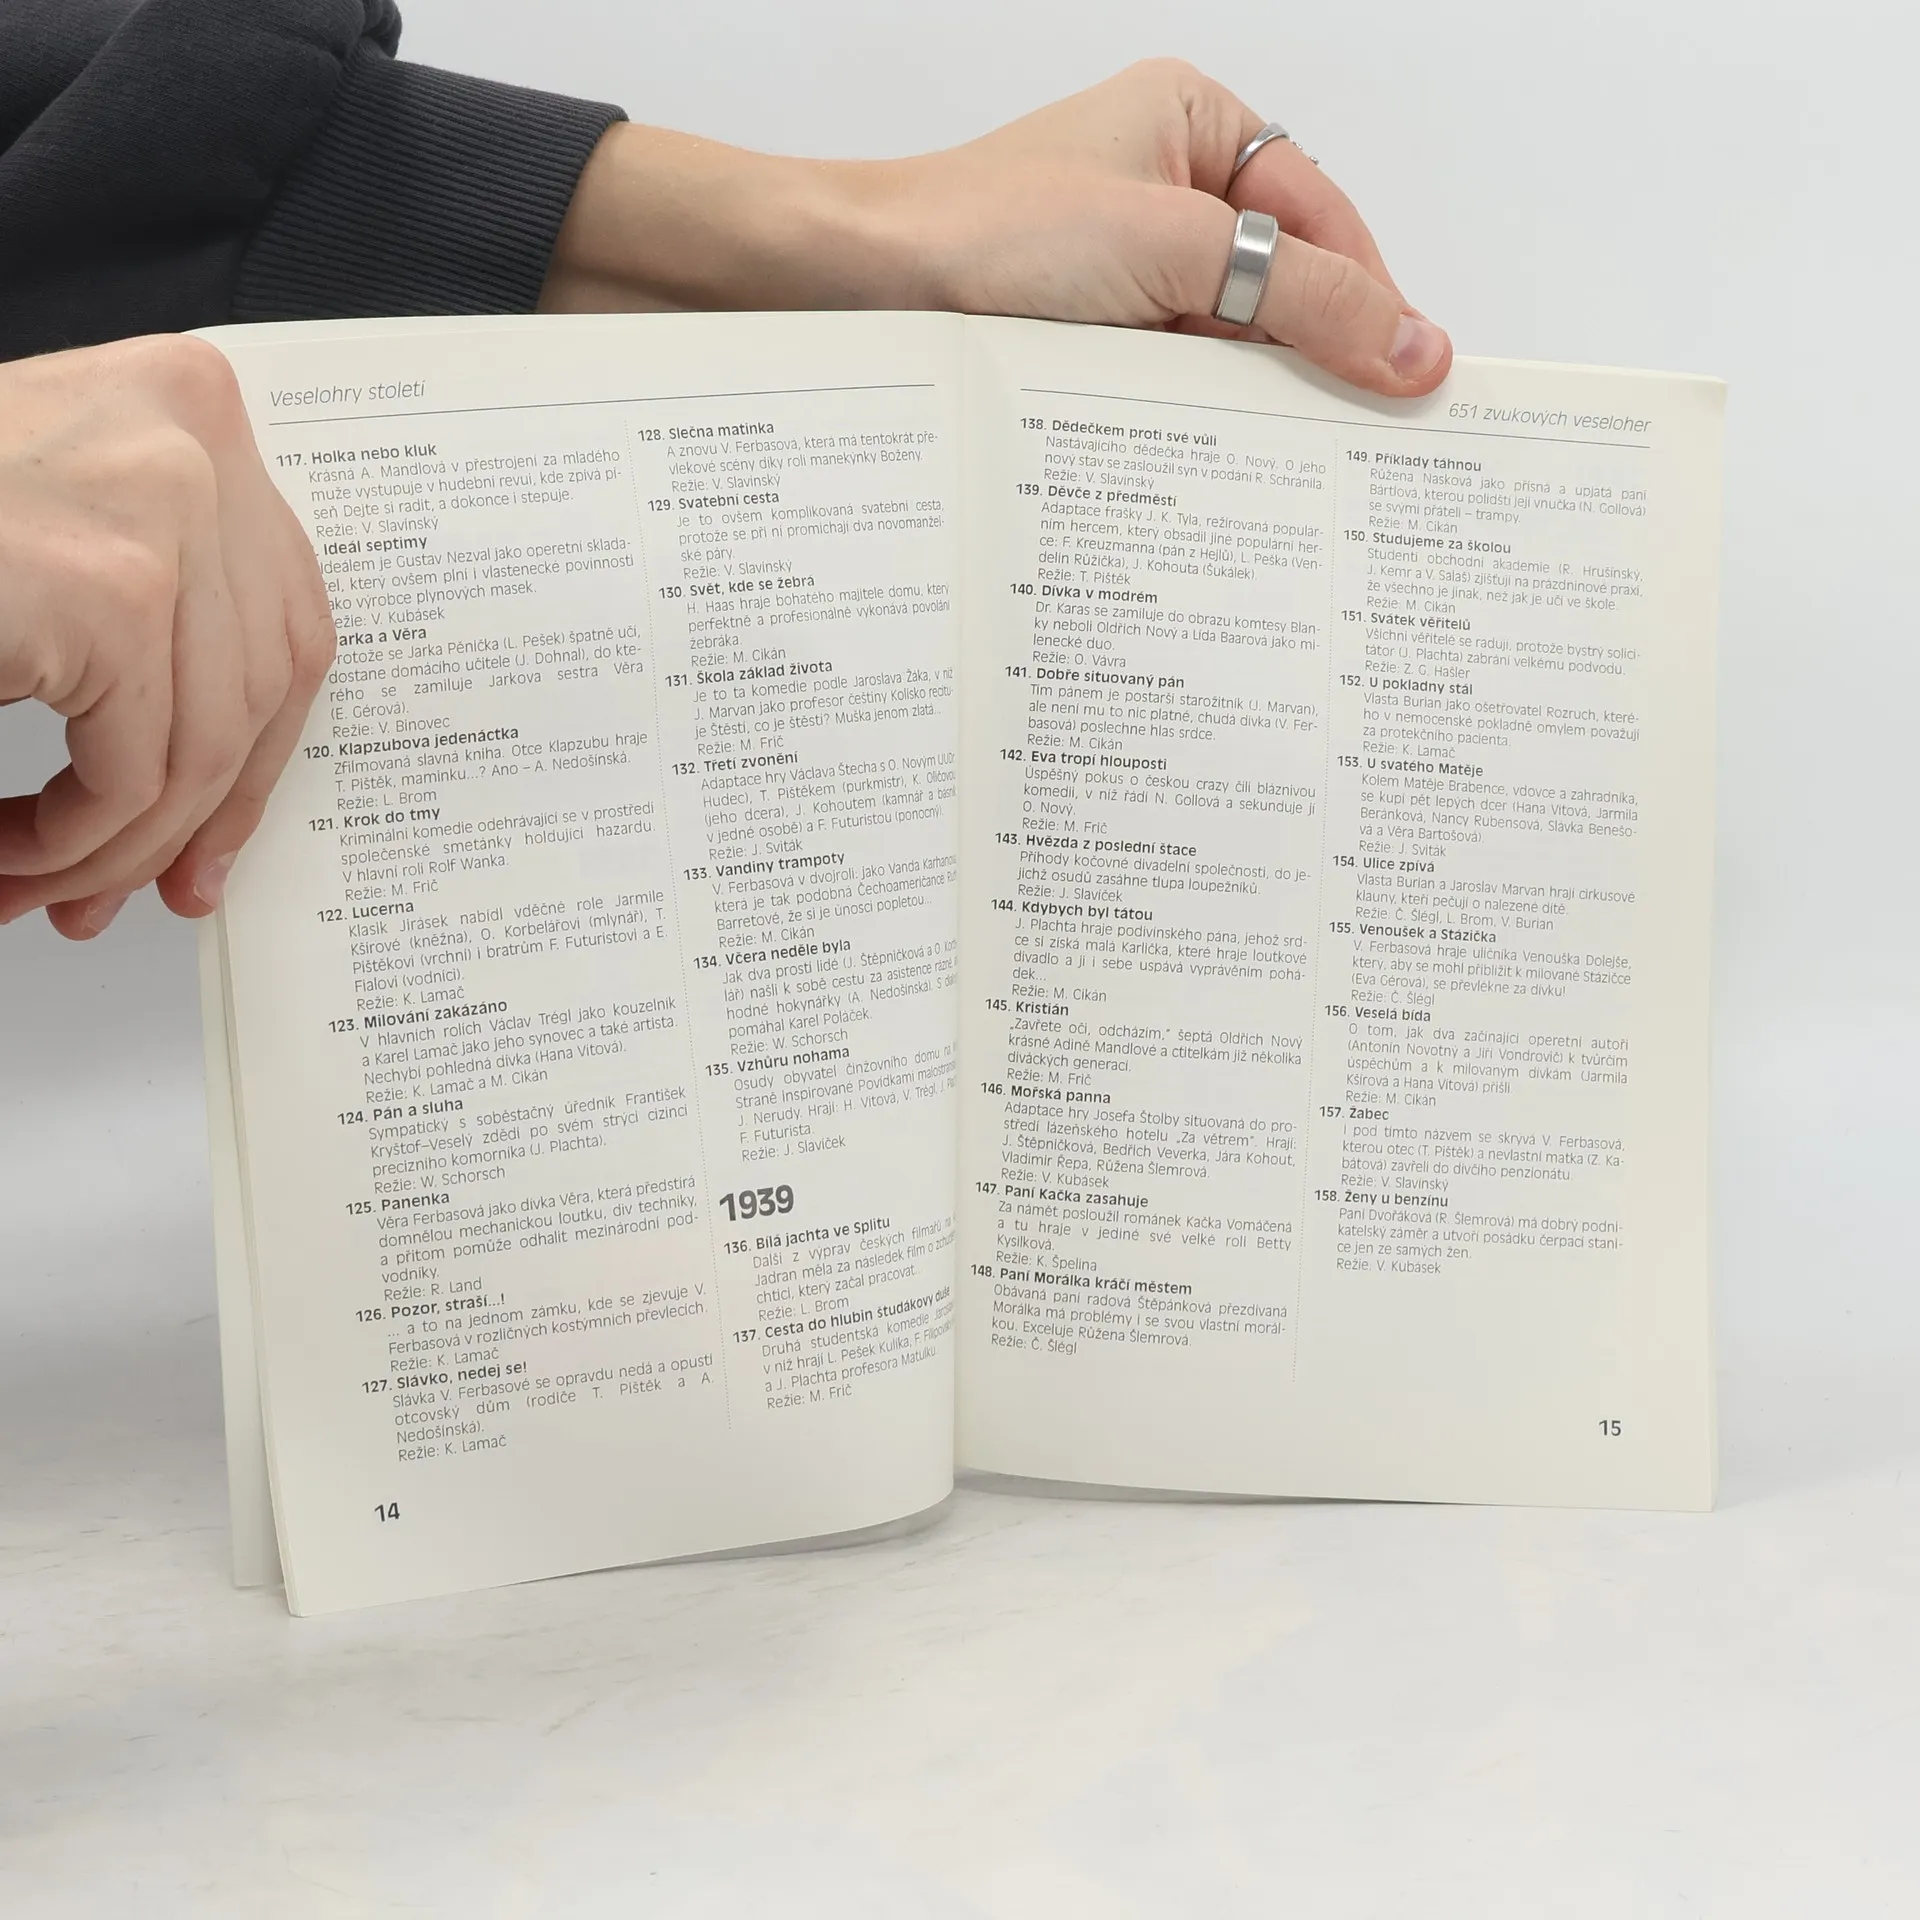 Veselohry století
117. Holka nebo kluk
Krásná A. Mandlová v přestrojení za mladého
muže vystupuje v hudební revui, kde zpívá pí-
seň Dejte si radit, a dokonce i stepuje.
Režie: V. Slavínský
Ideál septimy
Ideálem je Gustav Nezval jako operetní sklada-
tel, který ovšem plní i vlastenecké povinnosti
ako výrobce plynových masek.
ežie: V. Kubásek
Jarka a Věra
rotože se Jarka Pěnička (L. Pešek) špatně učí,
dostane domácího učitele (J. Dohnal), do kte-
rého se zamiluje Jarkova sestra Věra
(E. Gérová).
Režie: V. Binovec
120. Klapzubova jedenáctka
Zfilmovaná slavná kniha. Otce Klapzubu hraje
T. Pištěk, maminku...? Ano – A. Nedošinská.
Režie: L. Brom
121. Krok do tmy
Kriminální komedie odehrávající se v prostředí
společenské smetánky holdující hazardu.
V hlavní roli Rolf Wanka.
Režie: M. Frič
122. Lucerna
Klasik Jirásek nabídl vděčné role Jarmile
Kšírové (kněžna), O. Korbelářovi (mlynář), T.
Pištěkovi (vrchní) i bratrům F. Futuristovi a E.
Fialovi (vodníci).
Režie: K. Lamač
123. Milování zakázáno
V hlavních rolích Václav Trégl jako kouzelník
a Karel Lamač jako jeho synovec a také artista.
Nechybí pohledná dívka (Hana Vítová).
Režie: K. Lamač a M. Cikán
124. Pán a sluha
Sympatický s soběstačný úředník František
Kryštof–Veselý zdědí po svém strýci cizinci
precizního komorníka (J. Plachta).
Režie: W. Schorsch
125. Panenka
Věra Ferbasová jako dívka Věra, která předstírá
domnělou mechanickou loutku, div techniky,
a přitom pomůže odhalit mezinárodní pod-
vodníky.
Režie: R. Land
126. Pozor, straší...!
... a to na jednom zámku, kde se zjevuje V.
Ferbasová v rozličných kostýmních převlecích.
Režie: K. Lamač
127. Slávko, nedej se!
Slávka V. Ferbasové se opravdu nedá a opustí
otcovský dům (rodiče T. Pištěk a A.
Nedošinská).
Režie: K. Lamač
14
128. Slečna matinka
A znovu V. Ferbasová, která má tentokrát pře-
vlekové scény díky roli manekýnky Boženy.
Režie: V. Slavínský
129. Svatební cesta
Je to ovšem komplikovaná svatební cesta,
protože se při ní promíchají dva novomanžel-
ské páry.
Režie: V. Slavínský
130. Svět, kde se žebrá
H. Haas hraje bohatého majitele domu, který
perfektně a profesionálně vykonává povolání
žebráka.
Režie: M. Cikán
131. Škola základ života
Je to ta komedie podle Jaroslava Žáka, v níž
J. Marvan jako profesor češtiny Kolísko recitu-
je Štěstí, co je štěstí? Muška jenom zlatá...
Režie: M. Frič
132. Třetí zvonění
Adaptace hry Václava Štecha s O. Novým
Hudec), T. Pištěkem (purkmistr), K. Oličovou
(jeho dcera), J. Kohoutem (kamnář a básník
v jedné osobě) a F. Futuristou (ponocný).
Režie: J. Sviták
133. Vandiny trampoty
V. Ferbasová v dvojroli: jako Vanda Karhanová,
která je tak podobná Čechoameričance
Barretové, že si je únosci popletou...
Režie: M. Cikán
134. Včera neděle byla
Jak dva prostí lidé (J. Štěpničková a O.
lář) našli k sobě cestu za asistence rázné
hodné hokynářky (A. Nedošinská). S
pomáhal Karel Poláček.
Režie: W. Schorsch
135. Vzhůru nohama
Osudy obyvatel činžovního domu na
Straně inspirované Povídkami malostranskými
J. Nerudy. Hrají: H. Vítová, V. Trégl, J.
F. Futurista.
Režie: J. Slavíček
1939
136. Bílá jachta ve Splitu
Další z výprav českých filmařů na
Jadran měla za následek film o
chtici, který začal pracovat.
Režie: L. Brom
137. Cesta do hlubin študákovy duše
Druhá studentská komedie
v níž hrají L. Pešek Kulíka, F. Filipovský
a J. Plachta profesora Matulku.
Režie: M. Frič
651 zvukových veseloher
138. Dědečkem proti své vůli
Nastávajícího dědečka hraje O. Nový. O jeho
nový stav se zasloužil syn v podání R. Schránila.
Režie: V. Slavínský
139. Děvče z předměstí
Adaptace frašky J. K. Tyla, režírovaná populár-
ním hercem, který obsadil jiné populární her-
ce: F. Kreuzmanna (pán z Hejlů), L. Peška (Ven-
delín Růžička), J. Kohouta (Šukálek).
Režie: T. Pištěk
140. Dívka v modrém
Dr. Karas se zamiluje do obrazu komtesy Blan-
ky neboli Oldřich Nový a Lída Baarová jako mi-
lenecké duo.
Režie: O. Vávra
141. Dobře situovaný pán
Tím pánem je postarší starožitník (J. Marvan),
ale není mu to nic platné, chudá dívka (V. Fer-
basová) poslechne hlas srdce.
Režie: M. Cikán
142. Eva tropí hlouposti
Úspěšný pokus o českou crazy čili bláznivou
komedii, v níž řádí N. Gollová a sekunduje jí
O. Nový.
Režie: M. Frič
143. Hvězda z poslední štace
Příhody kočovné divadelní společnosti, do je-
jichž osudů zasáhne tlupa loupežníků.
Režie: J. Slavíček
144. Kdybych byl tátou
J. Plachta hraje podivínského pána, jehož srd-
ce si získá malá Karlička, které hraje loutkové
divadlo a ji i sebe uspává vyprávěním pohá-
dek...
Režie: M. Cikán
145. Kristián
„Zavřete oči, odcházím," šeptá Oldřich Nový
krásné Adině Mandlové a ctitelkám již několika
diváckých generací.
Režie: M. Frič
146. Mořská panna
Adaptace hry Josefa Štolby situovaná do pro-
středí lázeňského hotelu „Za větrem". Hrají:
J. Štěpničková, Bedřich Veverka, Jára Kohout,
Vladimír Řepa, Růžena Šlemrová.
Režie: V. Kubásek
147. Paní Kačka zasahuje
Za námět posloužil románek Kačka Vomáčená
a tu hraje v jediné své velké roli Betty
Kysilková.
Režie: K. Špelina
148. Paní Morálka kráčí městem
Obávaná paní radová Štěpánková přezdívaná
Morálka má problémy i se svou vlastní morál-
kou. Exceluje Růžena Šlemrová.
Režie: Č. Šlégl
149. Příklady táhnou
Růžena Nasková jako přísná a upjatá paní
Bártlová, kterou polidští její vnučka (N. Gollová)
se svými přáteli – trampy.
Režie: M. Cikán
150. Studujeme za školou
Studenti obchodní akademie (R. Hrušínský,
J. Kemr a V. Salač) zjišťují na prázdninové praxi,
že všechno je jinak, než jak je učí ve škole.
Režie: M. Cikán
151. Svátek věřitelů
Všichni věřitelé se radují, protože bystrý solici-
tátor (J. Plachta) zabrání velkému podvodu.
Režie: Z. G. Hašler
152. U pokladny stál
Vlasta Burian jako ošetřovatel Rozruch, které-
ho v nemocenské pokladně omylem považují
za protekčního pacienta.
Režie: K. Lamač
153. U svatého Matěje
Kolem Matěje Brabence, vdovce a zahradníka,
se kupí pět lepých dcer (Hana Vítová, Jarmila
Beránková, Nancy Rubensová, Slávka Benešo-
vá a Věra Bartošová).
Režie: J. Sviták
154. Ulice zpívá
Vlasta Burian a Jaroslav Marvan hrají cirkusové
klauny, kteří pečují o nalezené dítě.
Režie: Č. Šlégl, L. Brom, V. Burian
155. Venoušek a Stázička
V. Ferbasová hraje uličníka Venouška Dolejše,
který, aby se mohl přiblížit k milované Stázičce
(Eva Gérová), se převlékne za dívku!
Režie: Č. Šlégl
156. Veselá bída
O tom, jak dva začínající operetní autoři
(Antonín Novotný a Jiří Vondrovič) k tvůrčím
úspěchům a k milovaným dívkám (Jarmila
Kšírová a Hana Vítová) přišli.
Režie: M. Cikán
157. Žabec
I pod tímto názvem se skrývá V. Ferbasová,
kterou otec (T. Pištěk) a nevlastní matka (Z. Ka-
bátová) zavřeli do dívčího penzionátu.
Režie: V. Slavínský
158. Ženy u benzínu
Paní Dvořáková (R. Šlemrová) má dobrý podni-
katelský záměr a utvoří posádku čerpací stani-
ce jen ze samých žen.
Režie. V. Kubásek
15